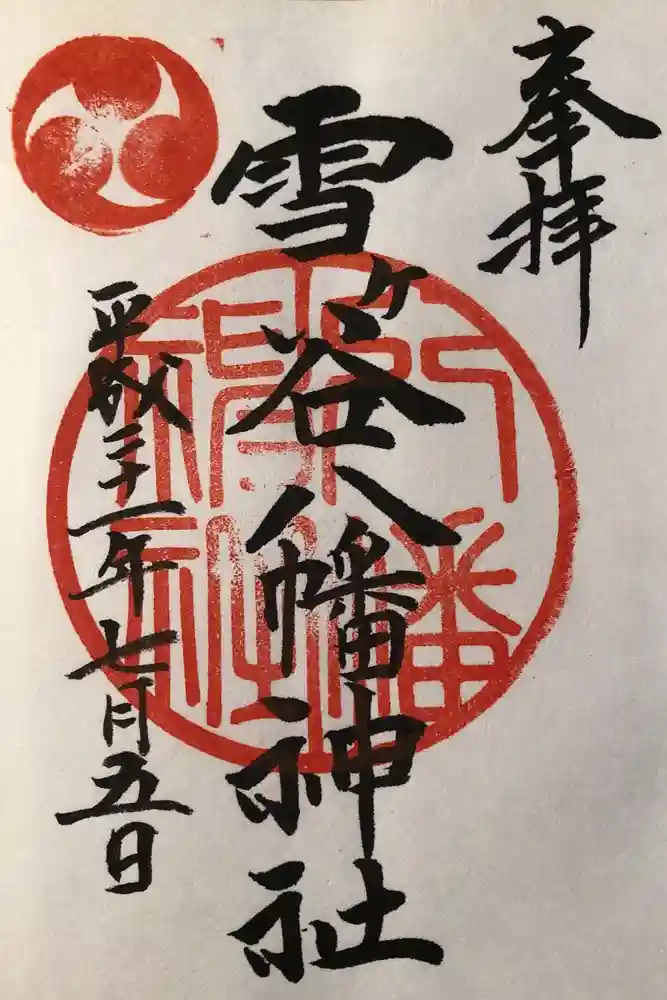 奉拝
雪ヶ谷八幡神社
平成二十一年七月五日